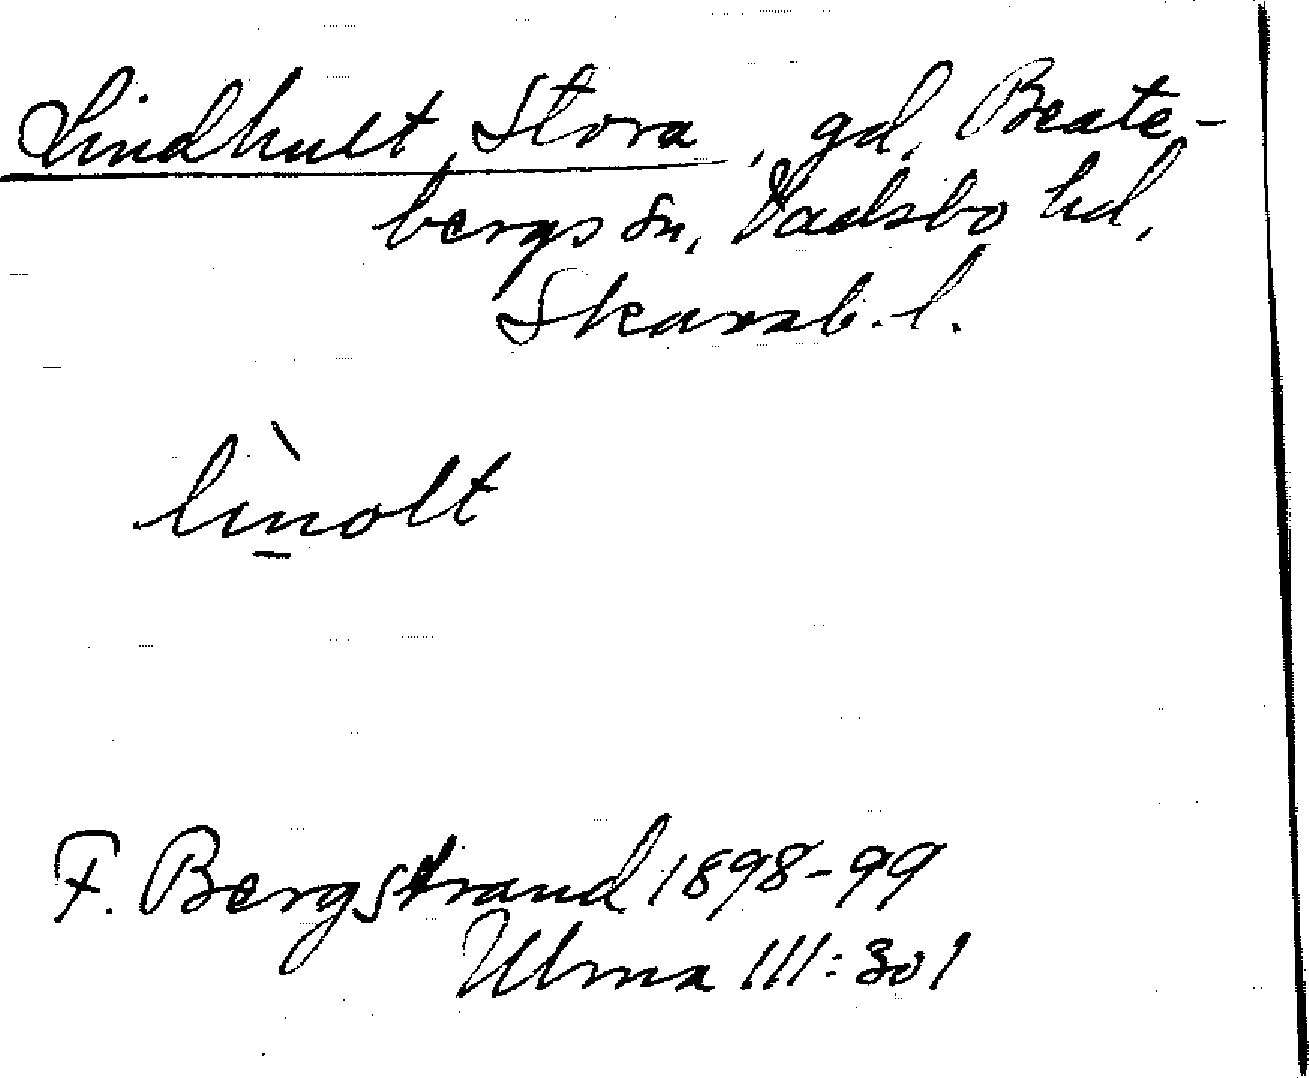 Lindhult, Stora, gd, Beate-
bergs sn, Vadsbo hd,
Skarab. l.
lìn̲olt
F. Bergstrand 1898-99
Ulma 111:301